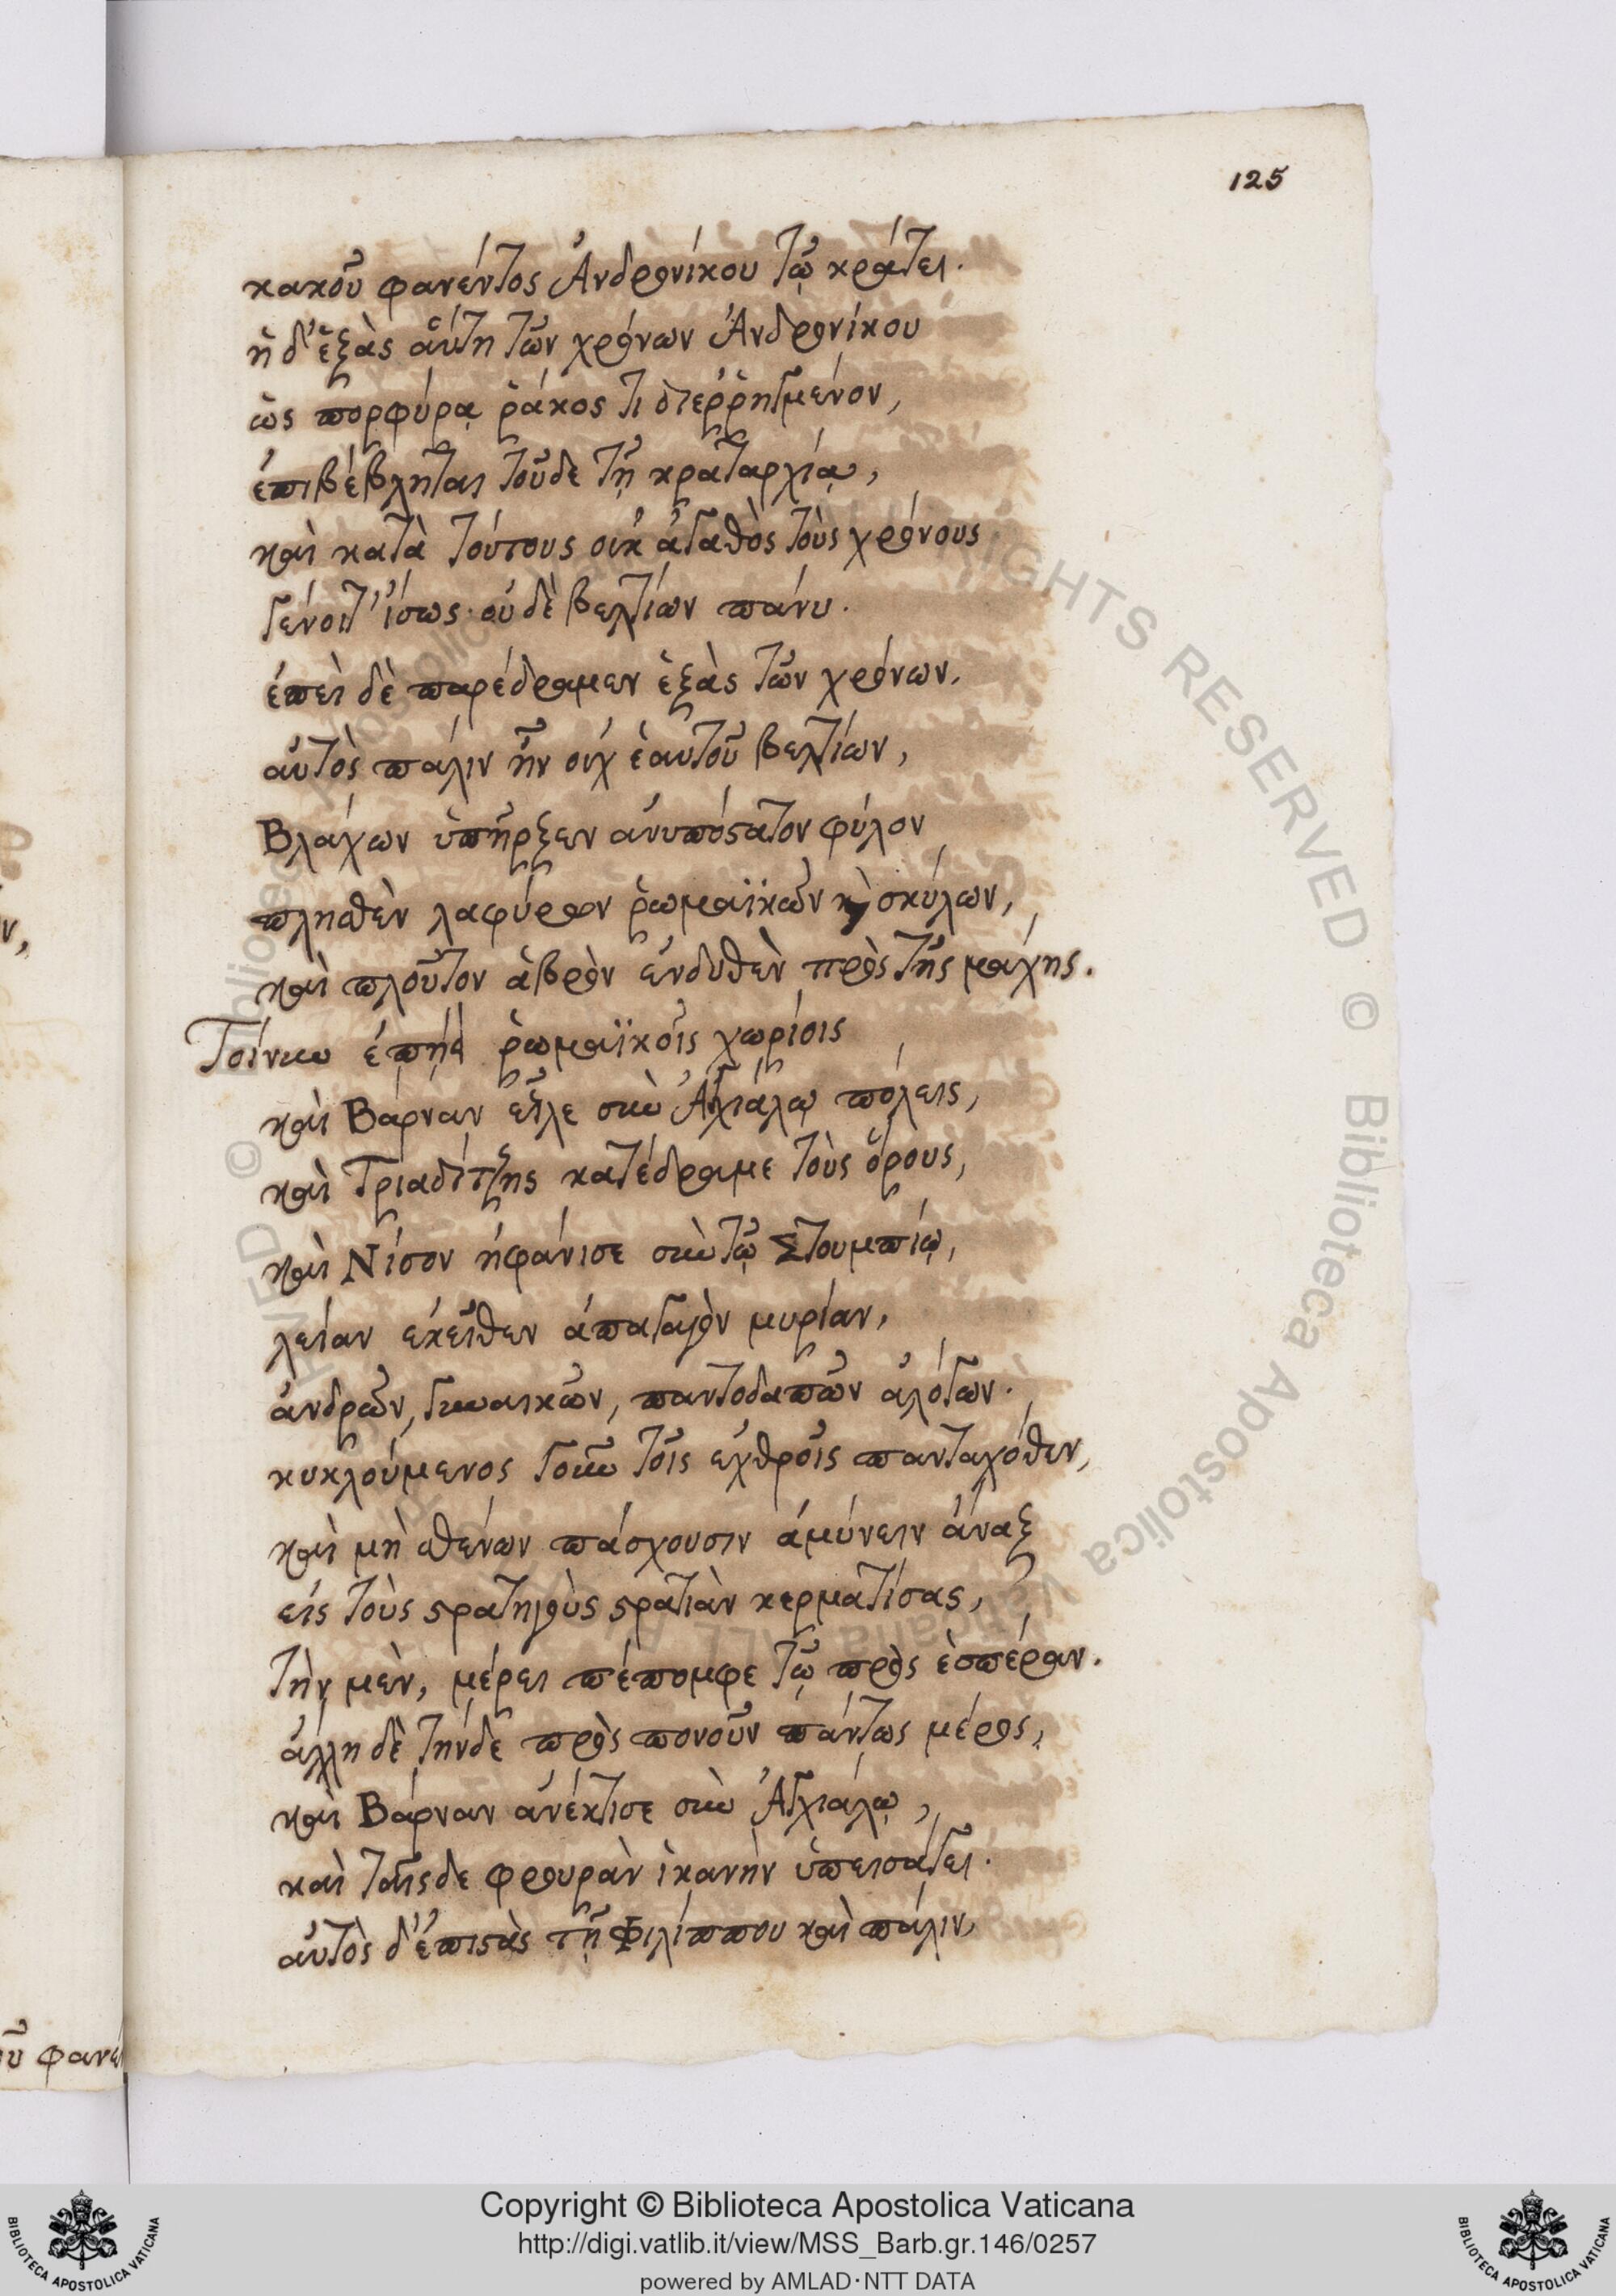 125
κακοῦ φανέντος Ἀνδρονίκου τῷ κράτει.
ἡ δ' ἑξὰς αὕτη τῶν χρόνων Ἀνδρονίκου
ὡς πορφύρᾳ ῥάκος τι διερῥηγμένον,
ἐπιβέβληται τοῦδε τῇ κραταρχίᾳ,
καὶ κατὰ τούτους οὐκ ἀγαθὸς τοὺς χρόνους
γένοιτ' ἴσως· οὐδὲ βελτίων πάνυ.
ἐπεὶ δὲ παρέδραμεν ἑξὰς τῶν χρόνων,
αὐτὸς πάλιν ἦν οὐχ ἑαυτοῦ βελτίων,
Βλάχων ὑπῆρξεν ἀνυπόστατον φύλον
πλησθὲν λαφύρων ῥωμαϊκῶν καὶ σκύλων,
καὶ πλοῦτον ἁβρὸν ἐνδυθὲν πρὸς τῆς μάχης.
ῥωμαϊκοῖς χωρίοις
καὶ Βάρναν εἷλε σὺν Ἀγχιάλῳ πόλεις,
καὶ Τριαδίτζης κατέδραμε τοὺς ὅρους,
καὶ Νίσον ἠφάνισε σὺν τῷ Στουμπίῳ,
λείαν ἐκεῖθεν ἀπαγαγὸν μυρίαν,
ἀνδρῶν, γυναικῶν, παντοδαπῶν ἀλόγων.
κυκλούμενος γοῦν τοῖς ἐχθροῖς πανταχόθεν,
καὶ μὴ σθένων πάσχουσιν ἀμύνειν ἄναξ
εἰς τοὺς στρατηγοὺς στρατιὰν κερματίσας,
τὴν μὲν, μέρει πέπομφε τῷ πρὸς ἑσπέραν.
ἄλλη δὲ τήνδε πρὸς πονοῦν πάντως μέρος,
καὶ Βάρναν ἀνέκτισε σὺν Ἀγχιάλῳ,
καὶ ταῖσδε φρουρὰν ἱκανὴν ὑπεισάγει.
αὐτὸς δ' ἐπιστὰς τῇ Φιλίππου καὶ πάλιν,
οῦ φανέ
Copyright © Biblioteca Apostolica Vaticana
http://digi.vatlib.it/view/MSS_Barb.gr.146/0257
powered by AMLAD·NTT DATA
BIBLIOTECA APOSTOLICA VATICANA
BIBLIOTECA APOSTOLICA VATICANA